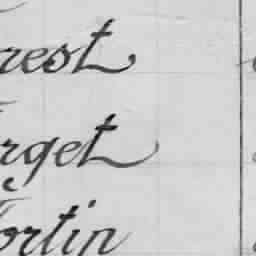 rest
rget
Fortin